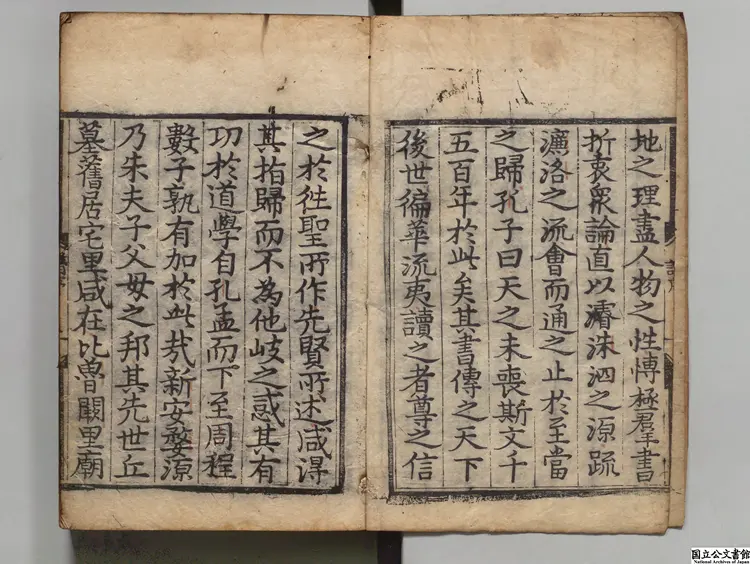 地之理盡人物之性慱極羣書
折衷衆論直以濬洙泗之源䟽
濂洛之流㑹而通之止於至當
之歸孔子曰天之未喪斯文千
五百年於此矣其書傳之天下
後世徧華流夷讀之者尊之信
之於徃聖所作先賢所述咸得
其指歸而不為他岐之惑其有
功於道學自孔孟而下至周程
數子孰有加於此㢤新安婺源
乃朱夫子父母之邦其先世丘
墓舊居宅里咸在比魯闕里廟
国立公文書館
National Archives of Japan